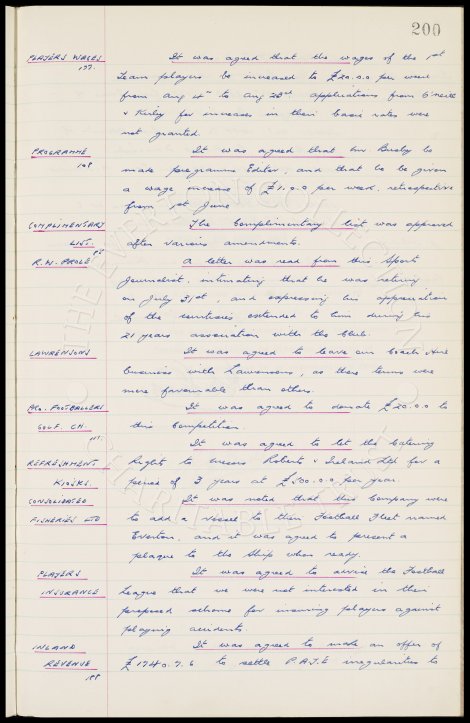 200
PLAYERS WAGES It was agreed that the wages of the 1st
197. team players be increased to £20.0.0 per week
from Aug 4th to Aug 23rd applications from O'Neill
& Kirby for increases in their basic rates were
not granted.
PROGRAMME It was agreed that Mr. Busby be
198 made programme Editor, and that he be given
a wage increase of £1.0.0 per week, retrospective
from 1st June
COMPLIMENTARY The Complimentary list was approved
LIST. after various amendments.
R.W. PROLE A letter was read from this Sport
Journalist, intimating that he was retiring
on July 31st, and expressing his appreciation
of the courtesies extended to him during his
21 years association with the Club.
LAWRENSONS It was agreed to leave our Coach Hire
business with Lawrensons, as their terms were
more favourable than others.
PRO. FOOTBALLERS It was agreed to donate £20.0.0 to
GOLF. CH. this Competition.
It was agreed to let the Catering
REFRESHMENT Rights to Messrs Roberts & Ireland Ltd for a
KIOSKS. period of 3 years at £500.0.0 per year
CONSOLIDATED It was noted that this Company were
FISHERIES LTD to add a vessel to their Football Fleet named
Everton, and it was agreed to present a
plaque to the Ship when ready.
PLAYERS It was agreed to advise the Football
INSURANCE League that we were not interested in their
proposed scheme for insuring players against
playing accidents
INLAND It was agreed to make an offer of
REVENUE £1740.7.6 to settle P.A.Y.E irregularities to
198
THE EVERTON COLLECTION
CHARITABLE